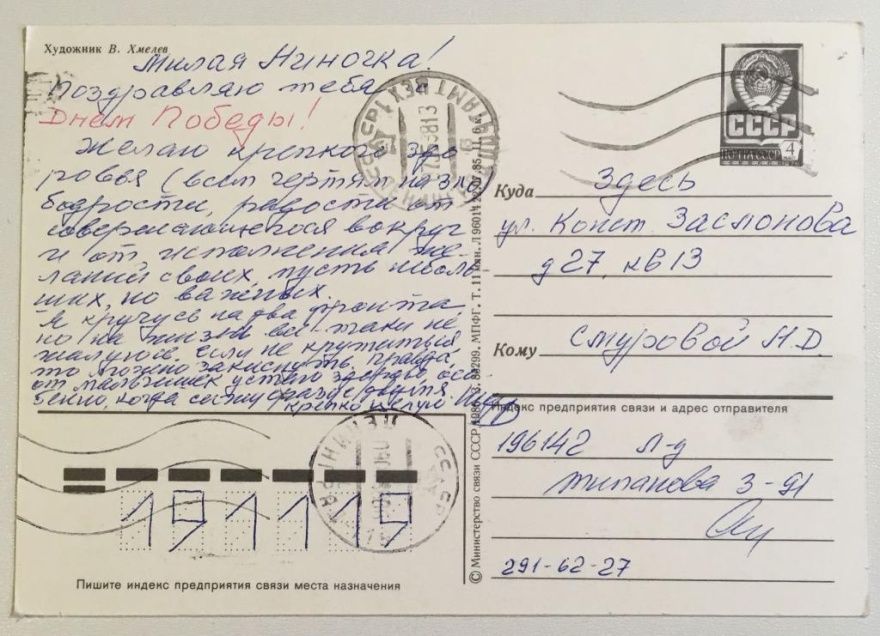 Художник В. Хмелев
Милая Ниночка!
Поздравляю тебя с
Днем Победы!
Желаю крепкого здо
ровья (всем чертям назло)
бодрости, радости от
совершающегося вокруг
и от исполнения же-
ланий своих, пусть неболь
ших, но важных.
Я кручусь на два фронта
но на жизнь все таки не
жалуюсь. если не крутиться
то можно закиснуть. Правда
от мальчишек устаю здорово осо
бенно, когда сижу сразу с двумя.
Крепко целую
СССР
ПОЧТА СССР 4
Куда Здесь
ул. Конст. Заслонова
д 27, кв 13
Кому Смуровой Н.Д.
Индекс предприятия связи и адрес отправителя
196142 Л-д
Типанова 3-91
291-62-27
191119
Пишите индекс предприятия связи места назначения
© Министерство связи СССР, 1986. З. 86299. МППГ. Т. 11